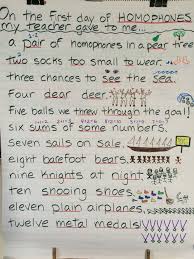 On the First day of HOMOPHONES
my teacher gave to me...
a pair of homophones in a pear tree
two socks too small to wear.
three chances to see the sea.
Four dear deer.
Five balls we threw through the goal!
six sums of some numbers.
seven sails on sale.
eight barefoot bears.
nine Knights at night
ten snooing shoes.
eleven plain airplanes.
twelve metal medals